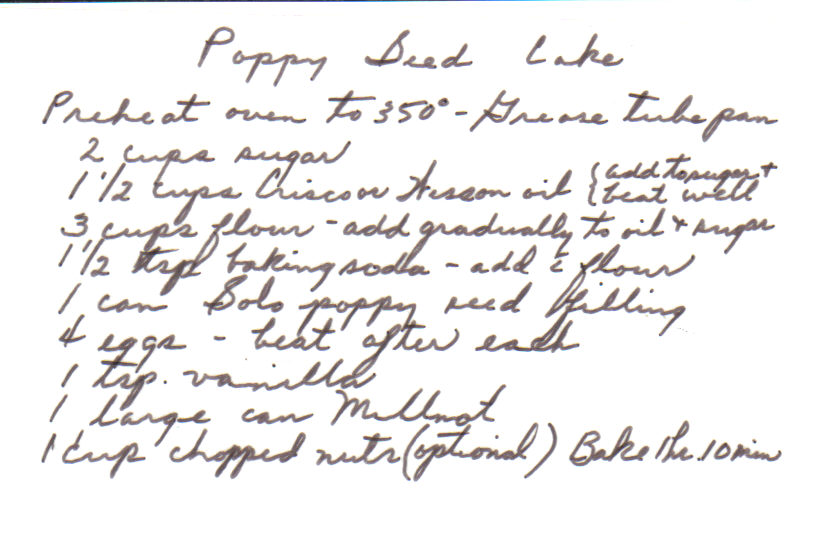 Poppy Seed Cake
Preheat oven to 350° - Grease tube pan
2 cups sugar
1 1/2 cups Crisco or Wesson oil { add to sugar +
{ beat well
3 cups flour - add gradually to oil + sugar
1 1/2 tsp baking soda - add c̄ flour
1 can Solo poppy seed filling
4 eggs - beat after each
1 tsp. vanilla
1 large can Millnot
1 cup chopped nuts (optional) Bake 1 hr. 10 min